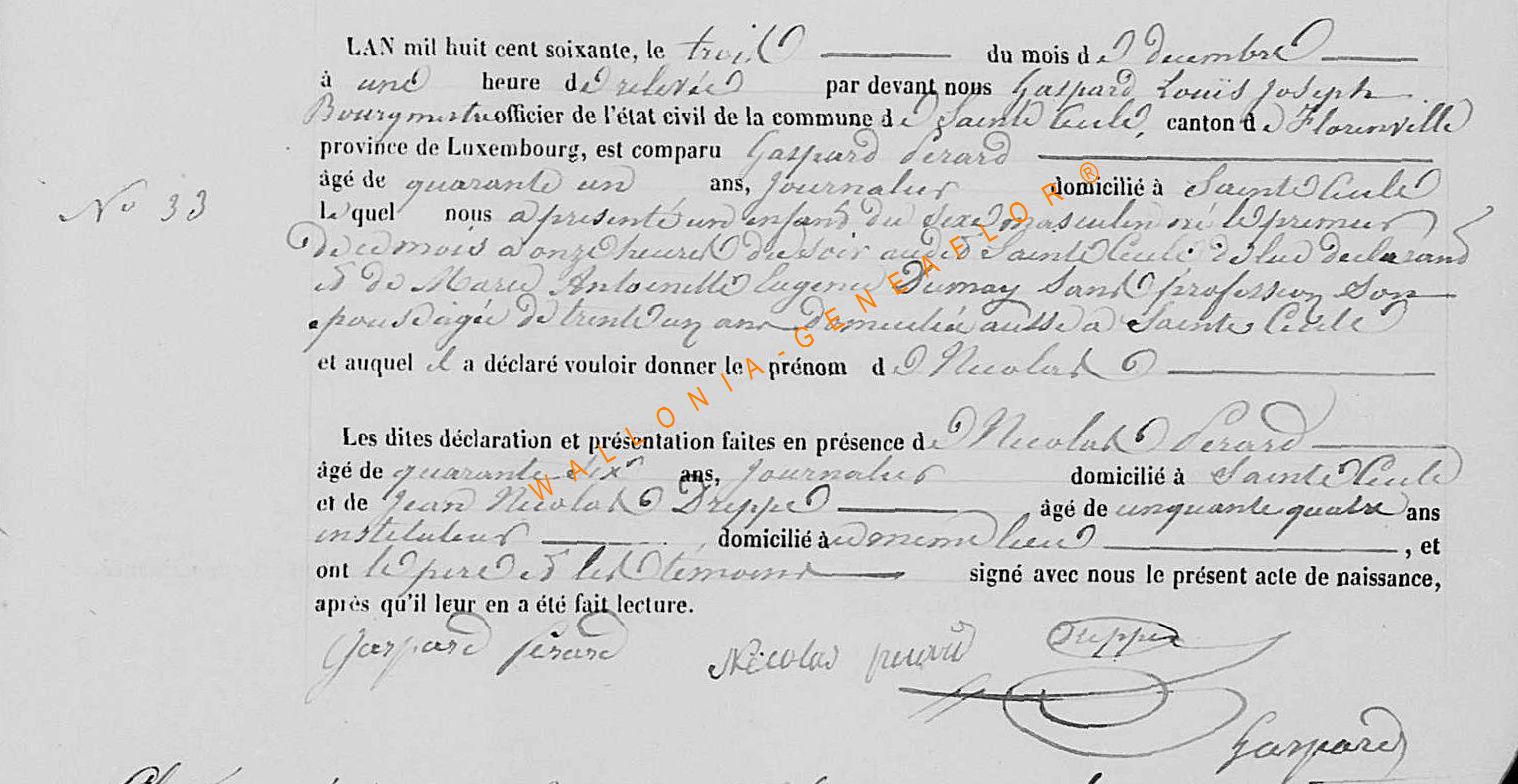 LAN mil huit cent soixante, le trois du mois de decembre
à une heure de relevée par devant nous Gaspard Louis Joseph
Bourgmestre officier de l'état civil de la commune de Sainte Cecile, canton de Florenville
province de Luxembourg, est comparu Gaspard Pérard
âgé de quarante un ans, Journalier domicilié à Sainte Cecile
N° 33
lequel nous a presenté un enfant du sexe masculin né le premier
de ce mois a onze heures du soir audit Sainte Cecile de lui declarant
et de Marie Antoinette Eugenie Dumay Sans profession Son
epouse agée de trente un ans domiciliée aussi a Sainte Cecile
et auquel il a déclaré vouloir donner le prénom de Nicolas
Les dites déclaration et présentation faites en présence de Nicolas Pérard
âgé de quarante six ans, Journalier domicilié à Sainte Cecile
et de Jean Nicolas Dreppe âgé de cinquante quatre ans
instituteur domicilié à meme lieu, et
ont le pere et les témoins signé avec nous le présent acte de naissance,
après qu'il leur en a été fait lecture.
Gaspard Pérard Nicolas perard Dreppe
Gaspard
WALLONIA-GENEAELOR®